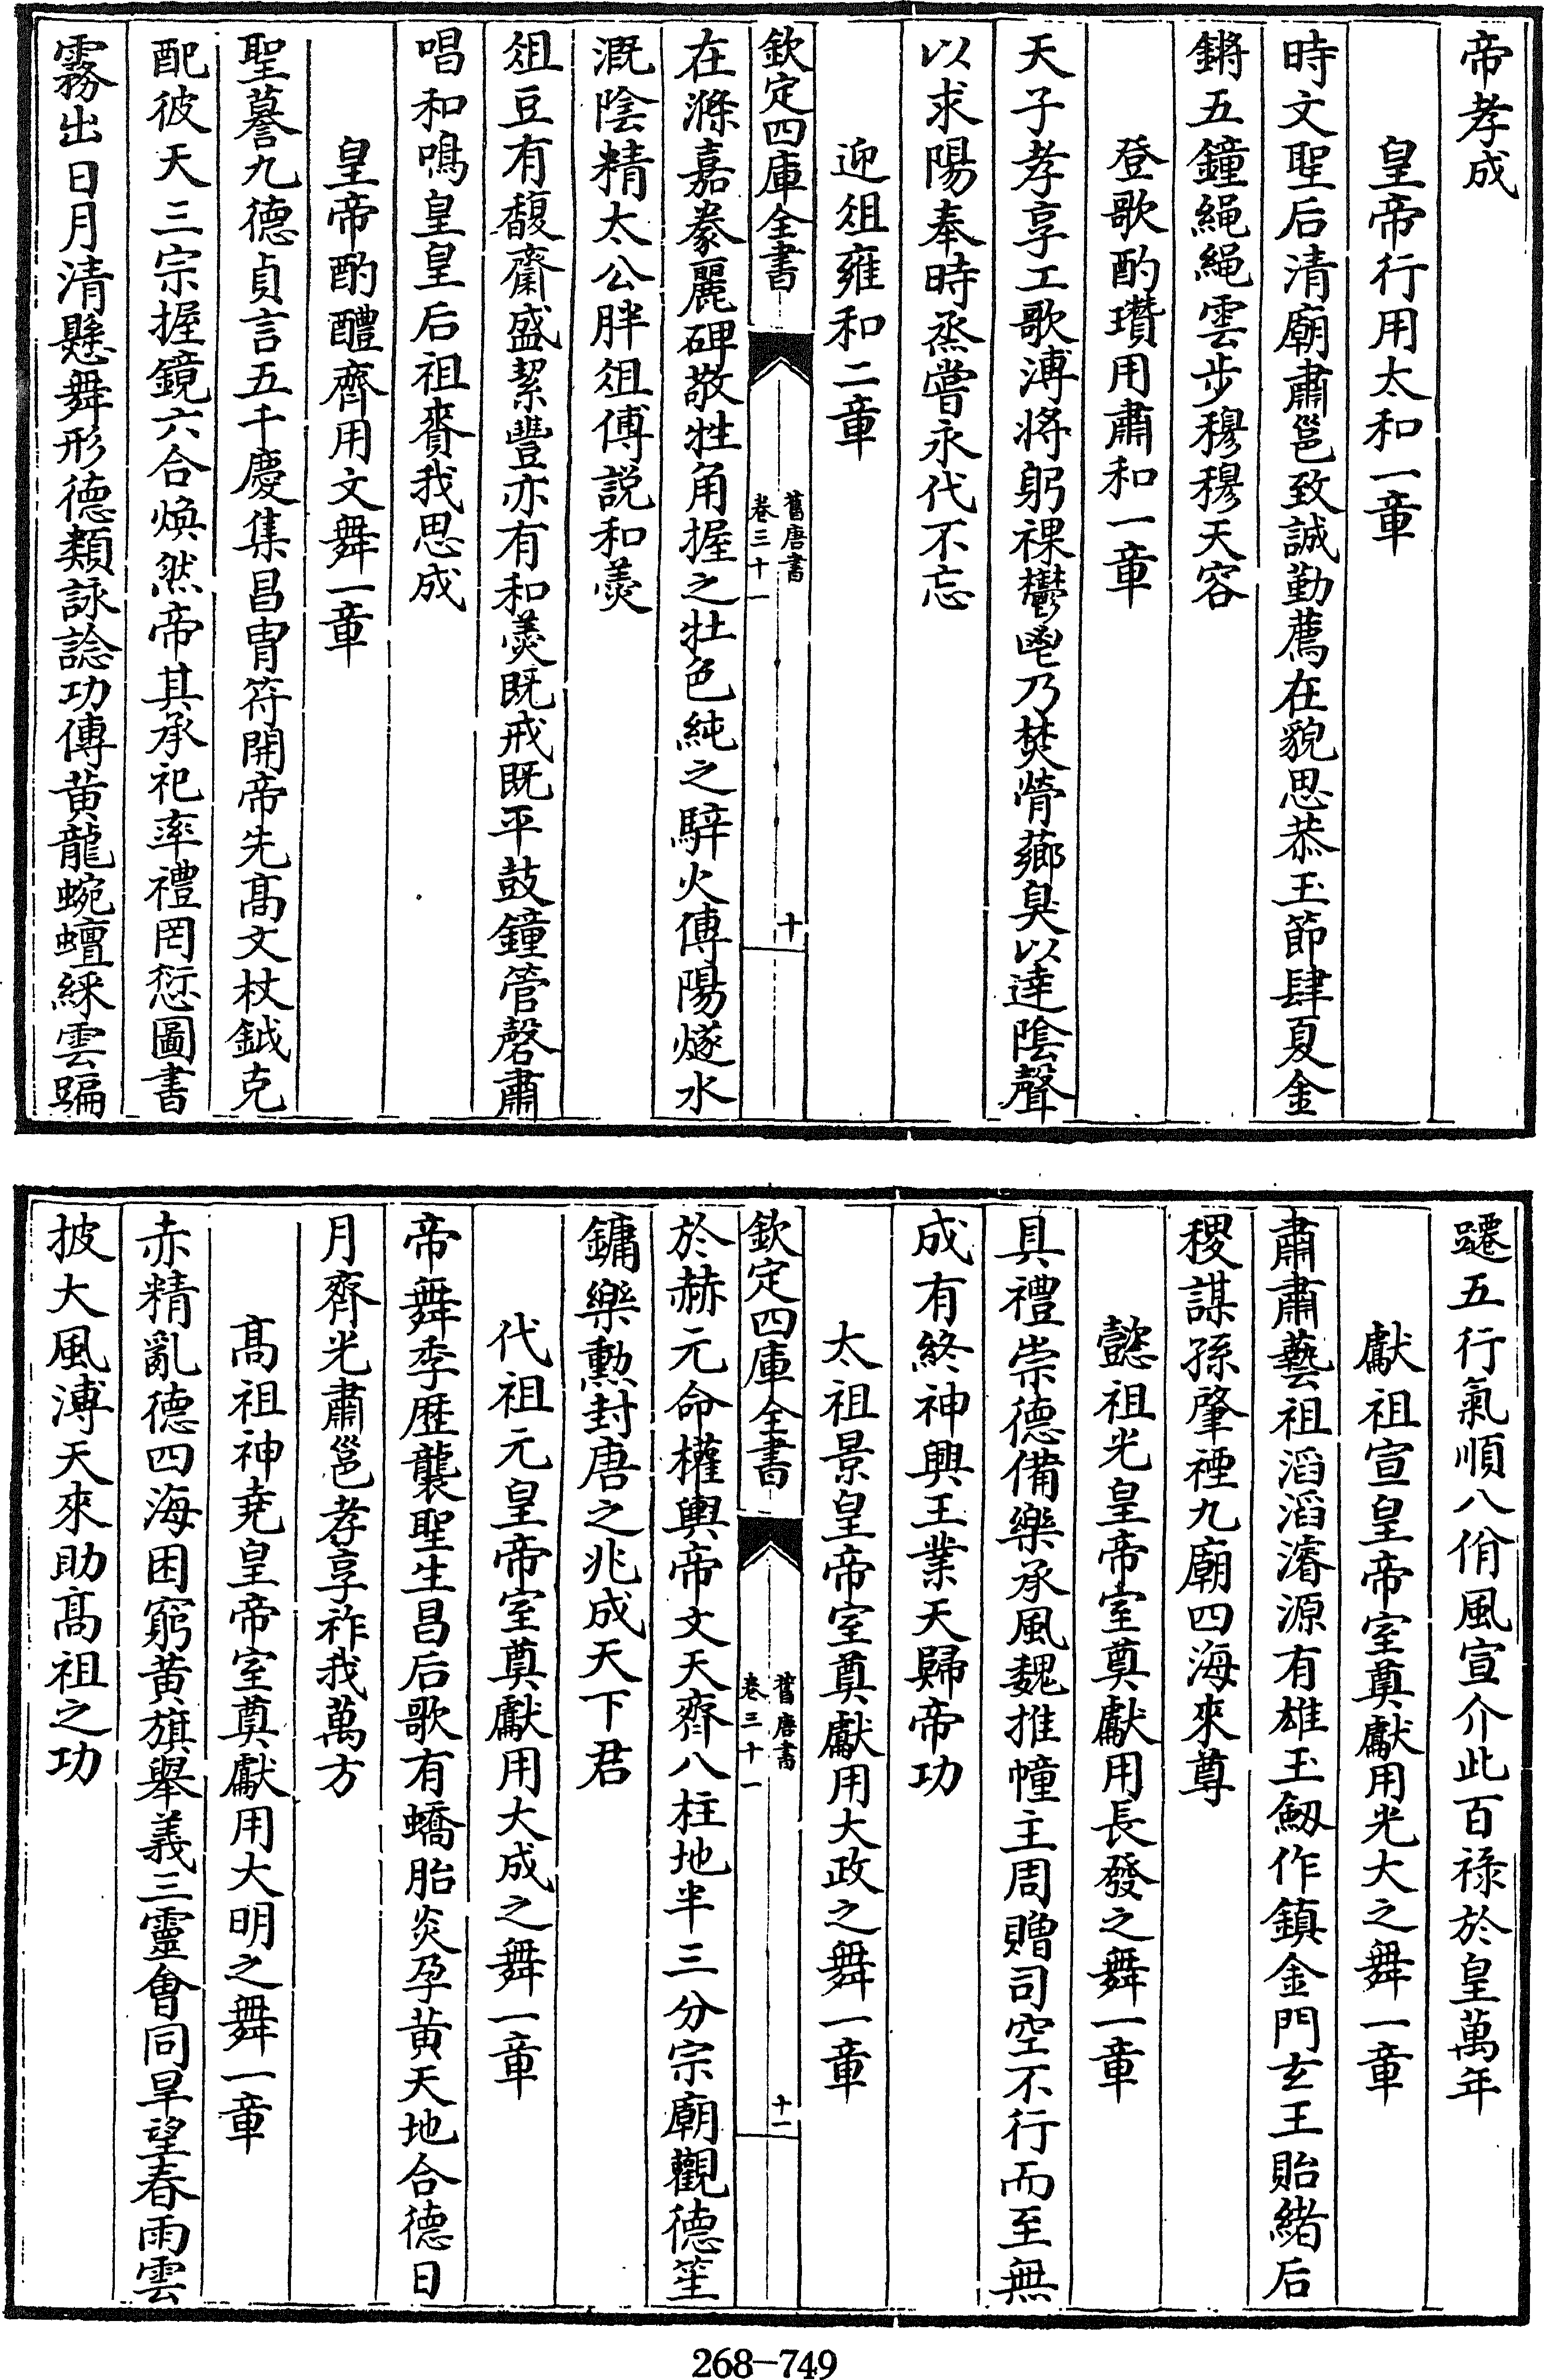 帝孝成
皇帝行用太和一章
時文聖后清廟肅邕致誠勤薦在貌思恭玉節肆夏金
鏘五鐘繩繩雲步穆穆天容
登歌酌瓚用肅和一章
天子孝享工歌溥將躬祼鬱鬯乃焚膋薌臭以達陰聲
以求陽奉時烝嘗永代不忘
迎俎雍和二章
欽定四庫全書
舊唐書
卷三十一
十
在滌嘉豢麗碑敬牲角握之牡色純之騂火傳陽燧水
溉陰精太公胖俎傅説和羮
俎豆有馥齋盛絜豐亦有和羮既戒既平鼓鐘管磬肅
唱和鳴皇皇后祖賚我思成
皇帝酌醴齊用文舞一章
聖謩九德貞言五千慶集昌胄符開帝先髙文杖鉞克
配彼天三宗握鏡六合煥然帝其承祀率禮罔愆圖書
霧出日月清懸舞形德類詠諗功傳黃龍蜿蟺綵雲蹁
躚五行氣順八佾風宣介此百祿於皇萬年
獻祖宣皇帝室奠獻用光大之舞一章
肅肅藝祖滔滔濬源有雄玉劒作鎮金門玄王貽緒后
稷謀孫肇禋九廟四海來尊
懿祖光皇帝室奠獻用長發之舞一章
具禮崇德備樂承風魏推幢主周贈司空不行而至無
成有終神興王業天歸帝功
太祖景皇帝室奠獻用大政之舞一章
欽定四庫全書
舊唐書
卷三十一
十一
於赫元命權輿帝文天齊八柱地半三分宗廟觀德笙
鏞樂勲封唐之兆成天下君
代祖元皇帝室奠獻用大成之舞一章
帝舞季歴襲聖生昌后歌有蟜胎炎孕黄天地合德日
月齊光肅邕孝享祚我萬方
髙祖神堯皇帝室奠獻用大明之舞一章
赤精亂德四海困窮黄旗舉義三靈㑹同旱望春雨雲
披大風溥天來助髙祖之功
268-749